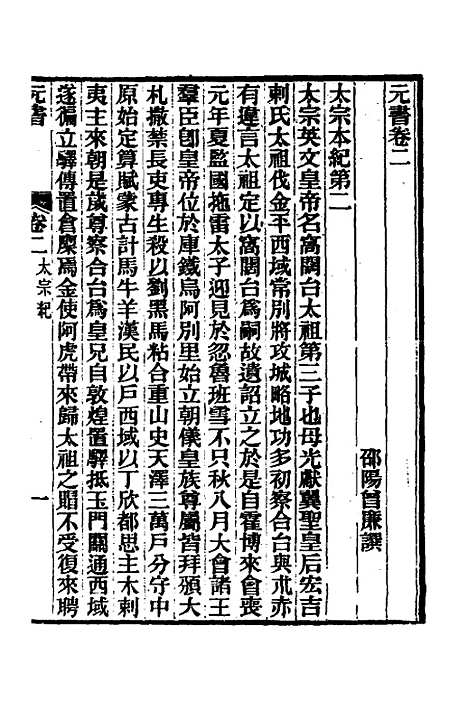 元書卷二
邵陽曾廉譔
太宗本紀第二
太宗英文皇帝名窩闊台太祖第三子也母光獻翼聖皇后宏吉
剌氏太祖伐金平西域常別將攻城略地功多初察合台與朮赤
有違言太祖定以窩闊台爲嗣故遺詔立之於是自霍博來會喪
元年夏監國拖雷太子迎見於忽魯班雪不只秋八月大會諸王
羣臣卽皇帝位於庫鐵烏阿別里始立朝儀皇族尊屬皆拜頒大
札撒禁長吏專生殺以劉黑馬粘合重山史天澤三萬戶分守中
原始定算賦蒙古計馬牛羊漢民以戶西域以丁欣都思主木剌
夷主來朝是歲尊察合台爲皇兄自敦煌置驛抵玉門關通西域
遂徧立驛傳置倉廩焉金使阿虎帶來歸太祖之賵不受復來聘
元書
卷二 太宗紀
一